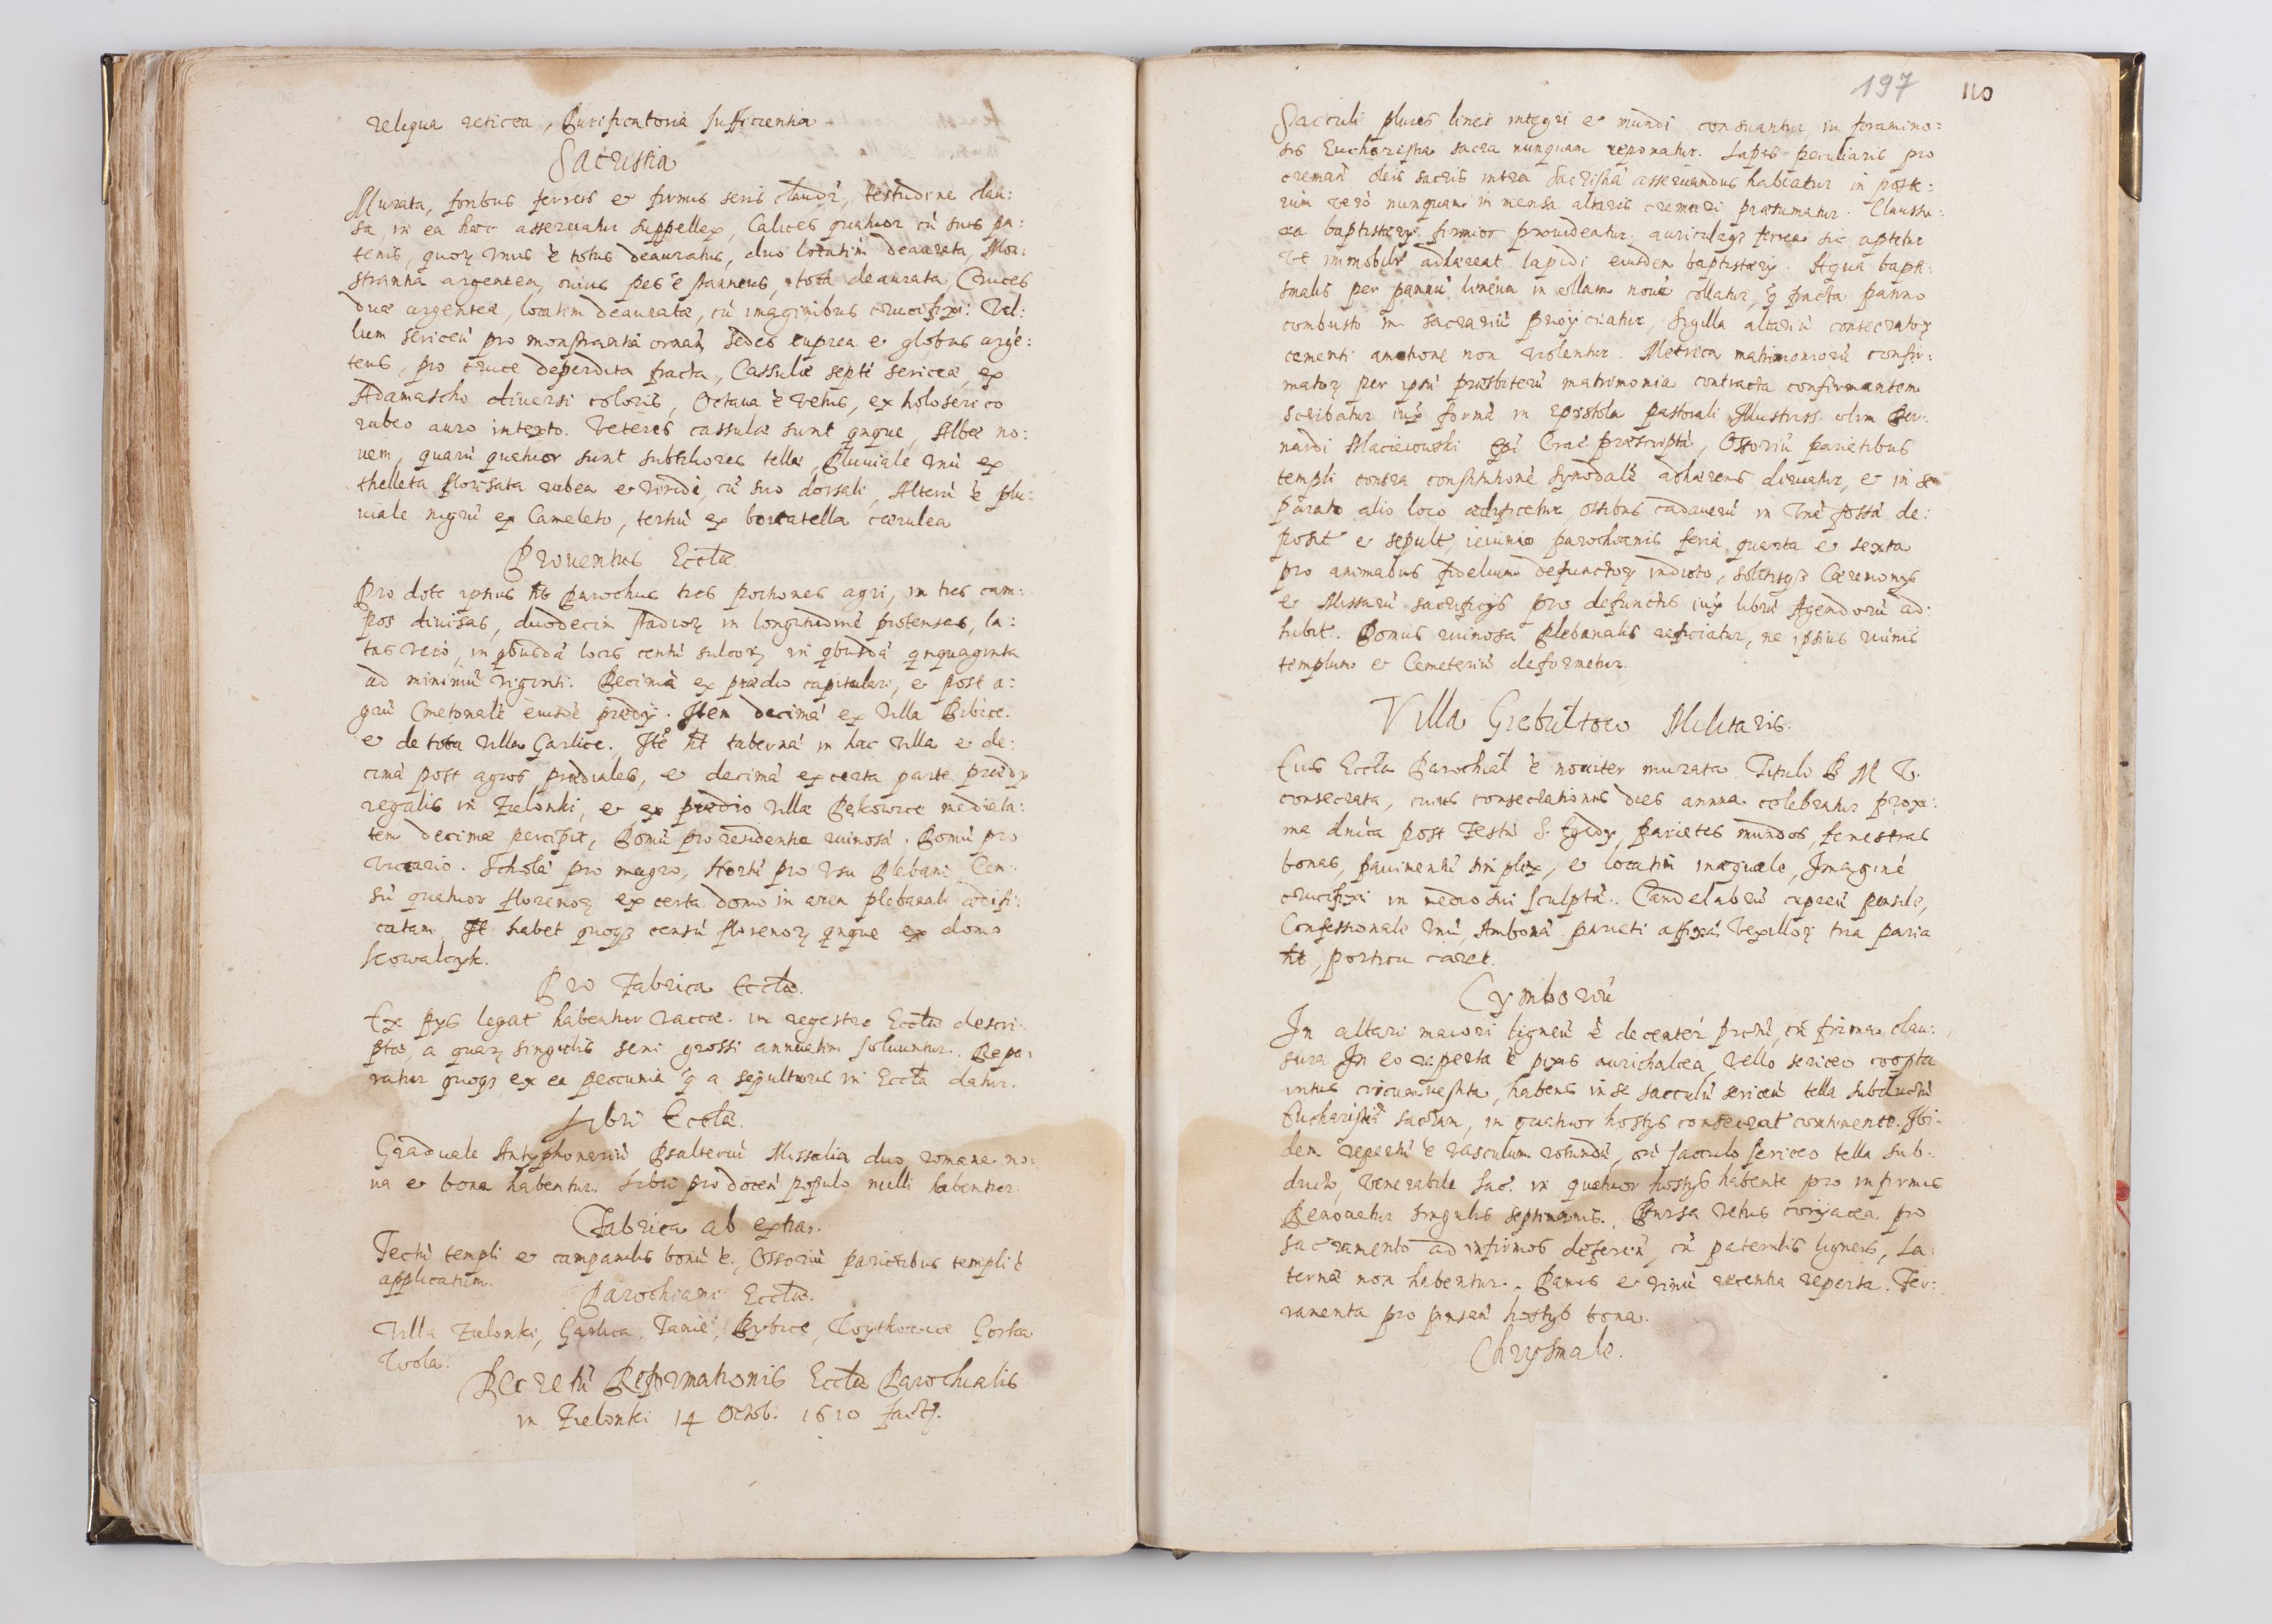 reliqua reticea, Purificatoria sufficientia
Sacristia
Murata, foribus ferreis et firmis seris claudr̄, testudine clau:
sa, in ea haec asseruatur suppellex, Calices quatuor cū suis pa:
tenis, quoꝝ vnus ē totus deauratus, duo locatim deaurata, Mon:
strantia argentea, cuius pes ē stanneus, tota deaurata, Cruces
duae argenteae, locatim deauratae, cū imaginibus crucifixi: Vel:
lum sericeū pro monstrantia ornan̄, sedes cuprea et globus argē:
teus, pro cruce deperdita facta, Cassulae septē sericeae, ex
Adamascho diuersi coloris, Octaua ē vetus, ex holoserico
rubeo auro intexto. Veteres cassulae sunt qnque, Albae no:
uem, quarū quatuor sunt subtiliores tellae, Pluuiale vnū ex
thelleta florisata rubea et viridi, cū suo dorsali, Alterū ē plu:
uiale nigrū ex Cameleto, tertiū ex borcatella caerulea
Prouentus Eccłae
Pro dote ipsius ħt Parochus tres portiones agri, in tres cam:
pos diuisas, duodecim stadioꝝ in longitudinē protensas, la:
tas verò, in qbusdā locis centū sulcoꝝ, in qbusdā qnquaginta
ad minimū viginti. Decimā ex praedio capitulari, et post a:
grū Cmetonalē eiusdē praedij. Item decimā ex villa Bibice.
et de tota villa Garlice. Itē ħt tabernā in hac villa et de:
cimā post agros praediales, et decimā ex certa parte praedij
regalis in Zielonki, et ex praedio villae Pękowice medieta:
tem decimae percipit, Domū pro residentia ruinosā. Domū pro
Vicario. Scholā pro magro, Hortū pro vsu Plebani. Cen:
sū quatuor florenoꝝ ex certa domo in area plebanali aedifi:
catam. It habet quoqȝ censū florenoꝝ qnque ex domo
Kowalczyk.
Pro Fabrica Eccłae.
Ex pijs legat habentur vaccae in regestro Eccłae descri:
ptae, a quaꝝ singulis seni grossi annuatim soluuntur. Repa:
ratur quoqȝ ex ea pecunia q̄ a sepulturis in Eccła datur.
Libri Eccłae.
Graduale Antyphonariū Psalteriū Missalia duo romana no:
ua et bona habentur. Libri pro docen̄ populo nulli habentur.
Fabrica ab extra.
Tectū templi et campanilis bonū ē, Ossoriū parietibus templi ē
applicatum.
Parochiani Eccłae.
Villa Zielonki, Garlica, Bybice, Woythowice Gorka
Wola.
Decretū Reformationis Eccłae Parochialis
in Zielonki 14 Octob. 1610 fact.
197 110
Sacculi plures linei integri et mundi consuantur, in foramino:
sis Eucharistia sacra nunquam reponatur. Lapis peculiaris pro
creman̄ oleis sacris intra Sacristiā asseruandus habeatur in poste:
rum verò nunquam in mensa altaris cremari praesumatur. Claustu:
ra baptisterij firmior prouideatur, auriculaqȝ ferrea sic aptetur
vt immobilr̄ adhaereat lapidi eiusdem baptisterij. Aqua bapti:
smalis per pannū lineum in ollam nouā collatur, q̄ facta panno
combusto in sacrariū proijciatur, Sigilla altariū consecratoꝝ
cementi amotione non violentur. Metrica matrimoniorū confir:
matoꝝ per ipsū praesbiterū matrimonia contracta confirmantem
scribatur iux formā in epistola pastorali Illustriss. olim Ber:
nardi Macieiowski Epi Crac praescriptā, Ossoriū parietibus
templi contra constitutionē Synodalē adhaerens diruatur, et in se
parato alio loco aedificetur, ossibus cadauerū in vnā fossā de:
posit et sepult, ieiunio parochianis feria quarta et sexta
pro animabus fidelium defunctoꝝ indicto, solitisqȝ Caeremonijs
et Missarū sacrificijs pro defunctis iux librū Agendorū ad:
hibit. Domus ruinosa Plebanalis reficiatur, ne ipsius ruinis
templum et Cemeteriū deformetur.
Villa Giebultow Militaris.
Eius Eccła Parochial ē nouiter murata Titulo B M V.
consecrata, cuius consecrationis dies annua celebratur proxi:
ma dnica post Festū S. Egidij, parietes mundos, fenestras
bonas, pauimentū simplex, et locatim inaequale, Imaginē
crucifixi in medio sui sculptā. Candelabrū cupreū pensile,
Confessionale vnū, Ambonā parieti affixā Vexilloꝝ tria paria
ħt, porticu caret.
Cymboriū
In altari maiori ligneū ē decenter pictū, cū firma clau:
sura In eo reperta ē pixis aurichalcea, vello sericeo coopta
intus circumuestita, habens in se sacculū sericeū tella subductū
Eucharistiā sacram, in quatuor hostijs consecrat continente. Ibi:
dem repertū ē vasculum rotundū, cū sacculo sericeo tella sub:
ducto, Venerabile Sac. in quatuor hostijs habente pro infirmis
Renouetur singulis septimanis. Bursa vetus corijacea pro
sacramento ad infirmos deferen̄, cū patentis ligneis, La:
terna non habentur. Panis et vinū recentia reperta. Fer:
ramenta pro pinsen̄ hostijs bona.
Chrysmale.